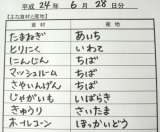 平成 24年 6月 28日分
【主な食材と産地】
食材 産地
たまねぎ あいち
とりにく いわて
にんじん ちば
マッシュルーム ちば
さやいんげん ちば
じゃがいも いばらき
きゅうり さいたま
ホールコーン ほっかいどう